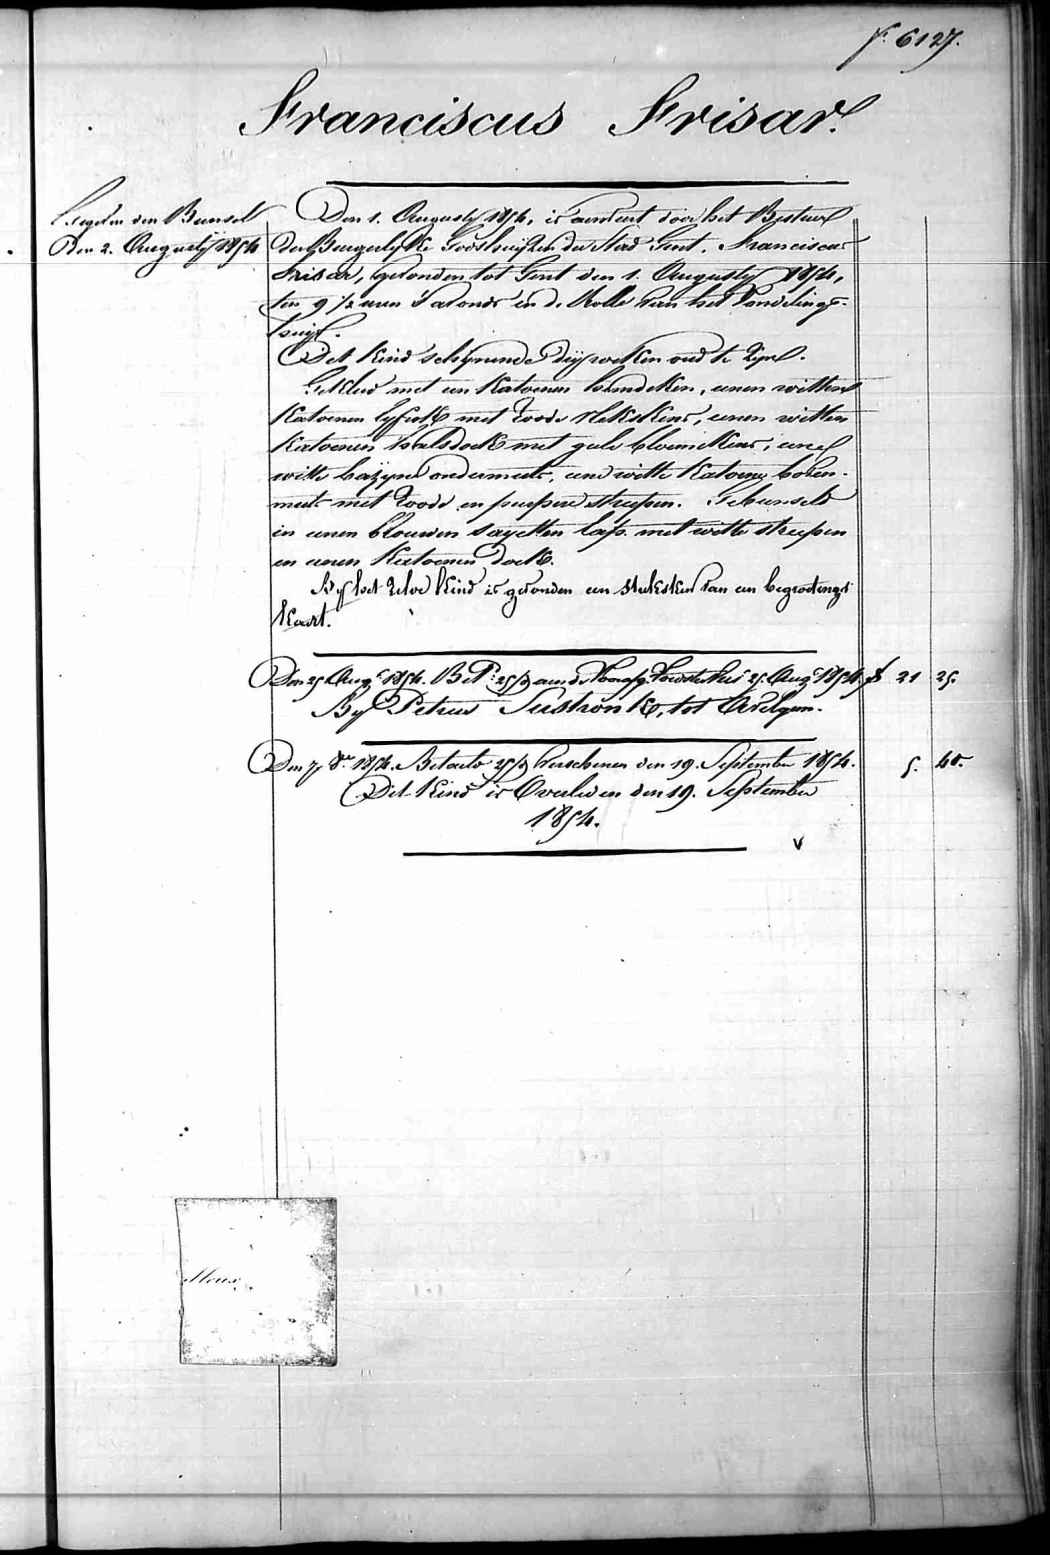 f. 6127.
Franciscus Frisar.
den Bunsel
Den 2. Augusty 1854
Den 1. Augusty 1854, is aenveert door het Bestuer
der Burgerlyke Godshuyzen der Stad Gent, Franciscus
Frisar, gevonden tot Gent den 1. Augusty 1854,
ten 9 1/2 uren s'avonds in de Rolle van het Vondelings-
huys.
Dit Kind schynende dry weken oud te zyn.
Gekleed met een katoenen hemdeken, eenen witten
katoenen lyfrok met roode vlekskens, eenen witten
katoenen halsdoek met gele bloemekens; eene
witte bazyne ondermuts, eene witte katoene boven-
muts met roode en purpere streepen. Gebunseld
in eenen blauwen sayetten lap met witte streepen
en eenen katoenen doek.
By het zelve kind is gevonden een stuksken van een begroetings
kaart.
Den 25 Aug. 1854. Bet. 25/3 aen de Voorsz. 25. Aug. 1854 f 21 25.
By Petrus Sustronk, tot Avelgem.
Den 7. 8er 1854. Betaelt 25/3 verschenen den 19. September 1854. 5. 40.
Dit Kind is Overleden den 19. September
1854.
v